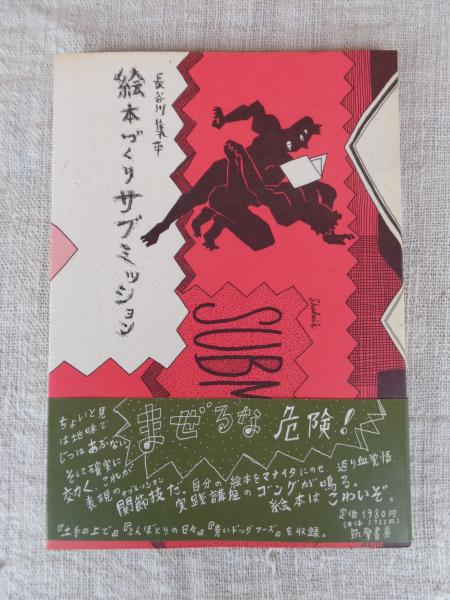 長谷川集平
絵本づくりサブミッション
Shuhei
SUBM
まぜるな危険!
ちょいと見
は地味で
じつはあぶない
そして確実に
効く、これが
表現の関節技だ。
サブミッション
自分の絵本をマナイタにのせ、返り血覚悟
実践講座のゴングが鳴る。
絵本はこわいぞ。
『土手の上で』『とんぼとりの日々』『青いドッグフーズ』を収録。
定価1980円
(本体1,922円)
筑摩書房